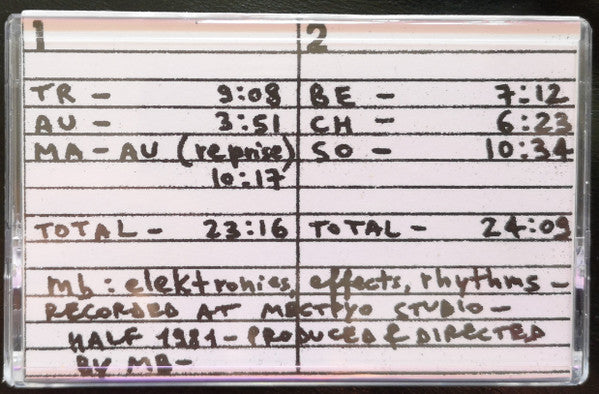 1
2
TR - 9:08
AU - 3:51
MA - AU (reprise)
10:17
TOTAL - 23:16
BE - 7:12
CH - 6:23
SO - 10:34
TOTAL - 24:09
mb: elektronics, effects, rhythms -
RECORDED AT MECTPYO STUDIO -
HALF 1981 - PRODUCED & DIRECTED
BY MB -